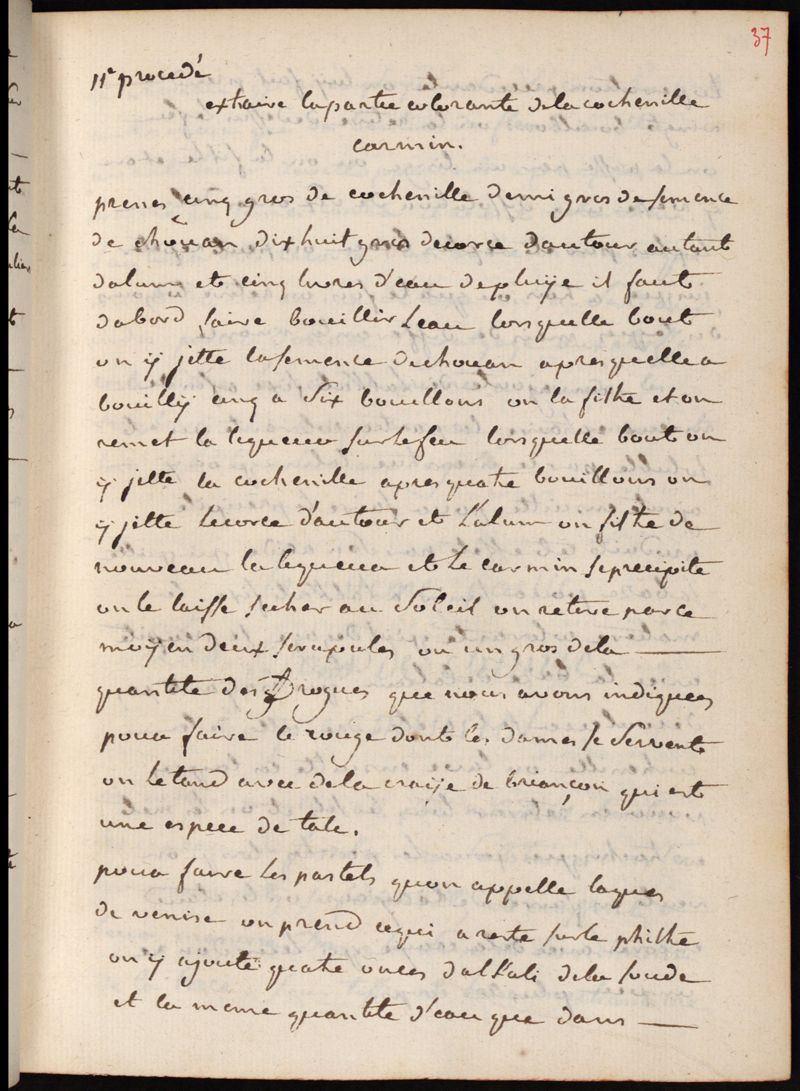 37
11e procedé
extraire lapartie colorante dela cochenille
carmin.
prenes cinq gros de cochenille demi gros de semence
de choüan dixhuit gros decorce dautour autant
dalum et cinq livres d'eau depluije il faut
dabord faire bouillir Leau lorsquelle bout
on ÿ jette lasemence dechouan apres quelle a
bouillÿ cinq a Six bouillons on la filtre et on
remet la liqueur surlefeu lorsquelle bout on
ÿ jette la cochenille apres quatre bouillons on
ÿ jette Lecorce d'autour et L'alum on filtre de
nouveau la liqueur et Le carmin seprecipite
on le laisse secher au Soleil on retire parce
moÿen deux scrupules ou un gros dela
quantité des Drogues que nous avons indiquees
pour faire le rouge dont les dames se Servent
on Letand avec dela craije de briançon qui est
une espece de talc.
pour faire Les pastels quon appelle laques
de venise on prend cequi a resté surle philtre
on ÿ ajoute quatre onces dalKali dela soude
et la meme quantité d'eau que dans